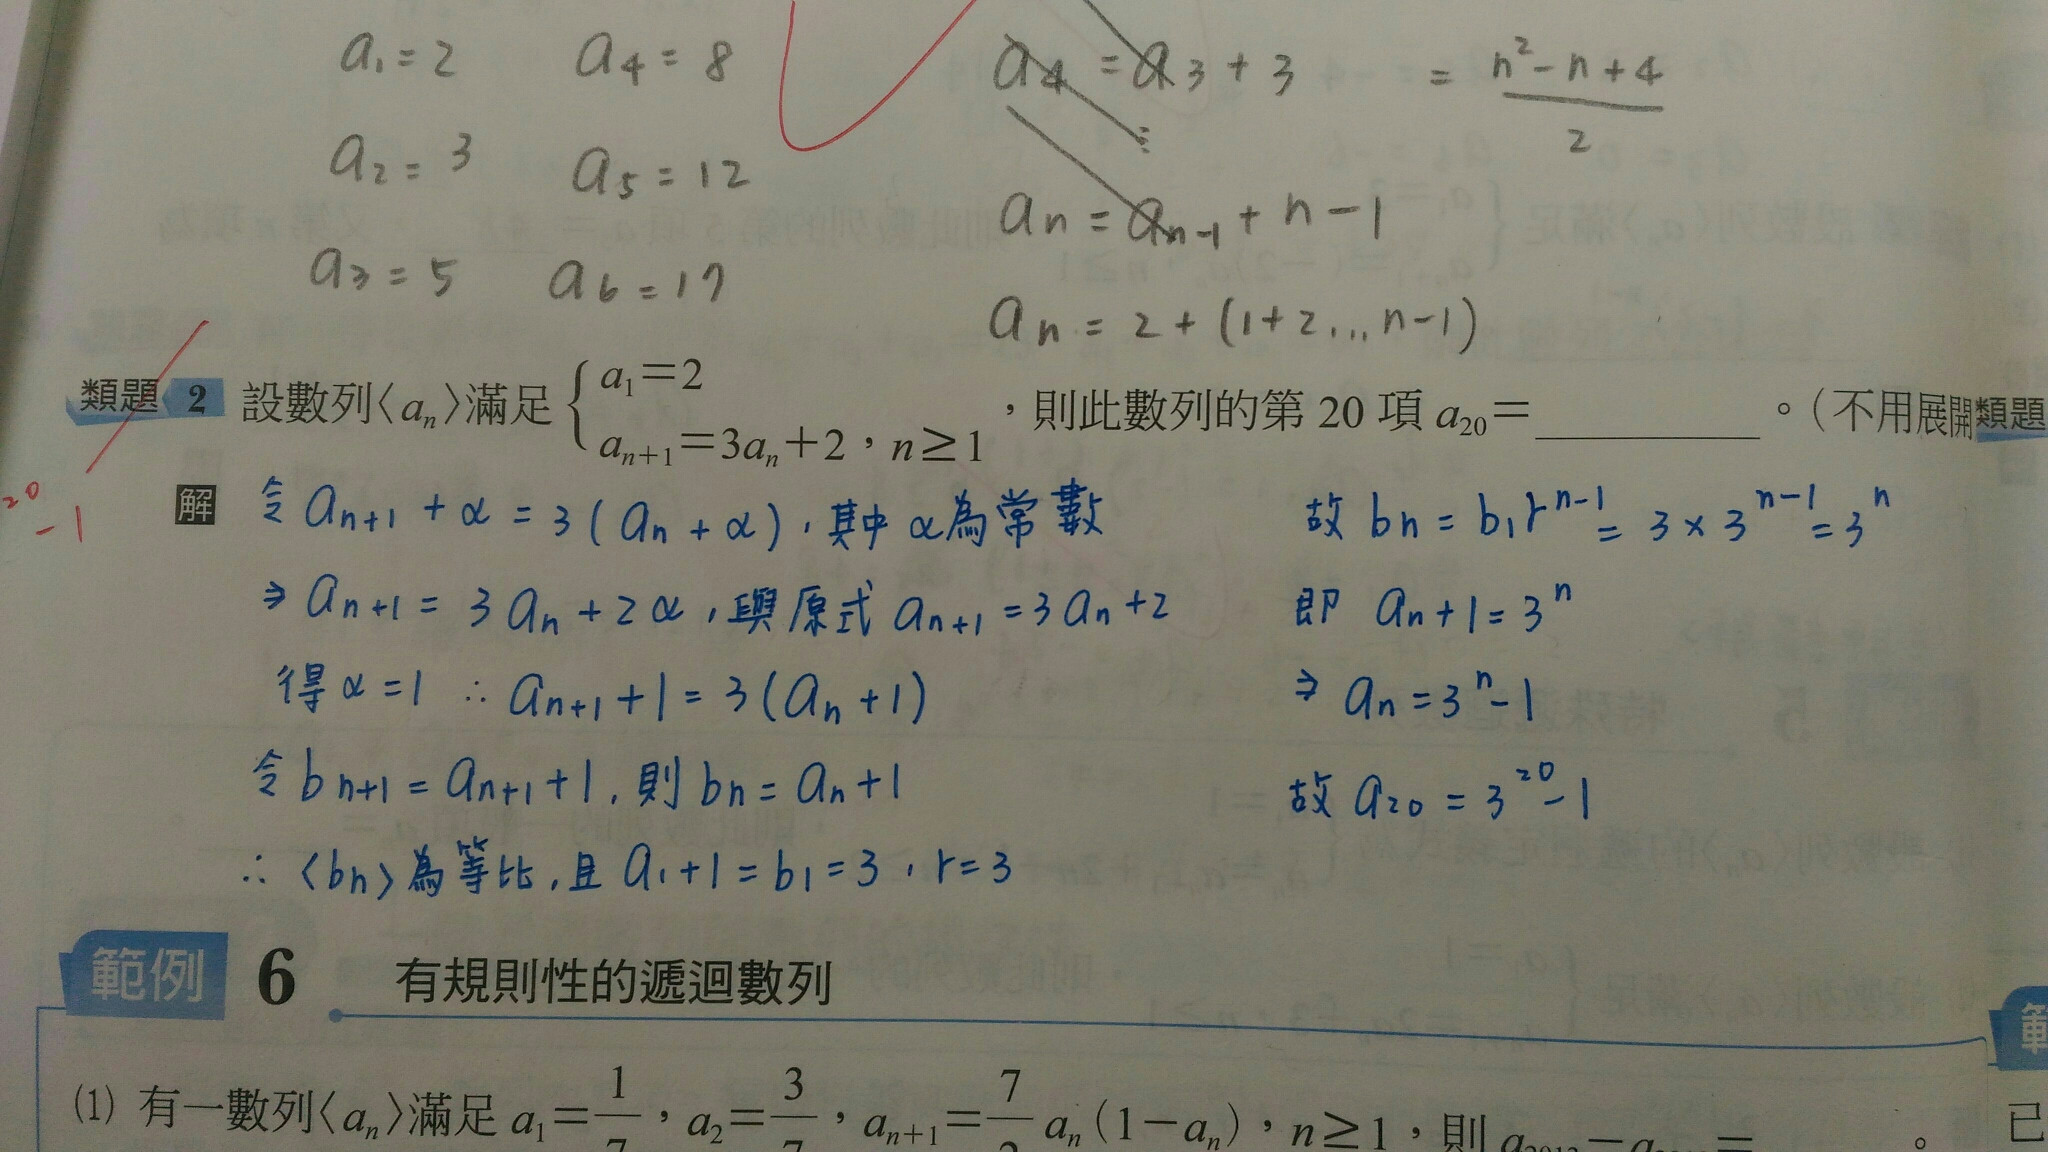 a₁ = 2 a₄ = 8
a₂ = 3 a₅ = 12
a₃ = 5 a₆ = 17
a₄ = a₃ + 3 = (n² - n + 4)/2
⋮
aₙ = aₙ₋₁ + n - 1
aₙ = 2 + (1+2...n-1)
類題 2 設數列〈aₙ〉滿足 { a₁=2
aₙ₊₁=3aₙ+2，n≥1 ，則此數列的第 20 項 a₂₀=________。(不用展開
類題
20 - 1
解 令 aₙ₊₁ + α = 3(aₙ + α)，其中 α為常數
⇒ aₙ₊₁ = 3aₙ + 2α，與原式 aₙ₊₁ = 3aₙ+2
得 α = 1 ∴ aₙ₊₁ + 1 = 3(aₙ + 1)
令 bₙ₊₁ = aₙ₊₁ + 1，則 bₙ = aₙ + 1
∴〈bₙ〉為等比，且 a₁+1 = b₁ = 3，r = 3
故 bₙ = b₁rⁿ⁻¹ = 3 × 3ⁿ⁻¹ = 3ⁿ
即 aₙ + 1 = 3ⁿ
⇒ aₙ = 3ⁿ - 1
故 a₂₀ = 3²⁰ - 1
範例 6 有規則性的遞迴數列
範
(1) 有一數列〈aₙ〉滿足 a₁=1/7，a₂=3/7，aₙ₊₁=7/2 aₙ(1−aₙ)，n≥1，則
已